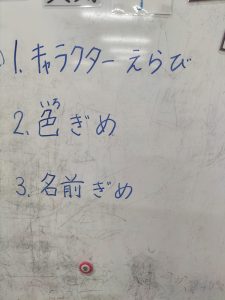 1. キャラクターえらび
いろ
2. 色ぎめ
3. 名前ぎめ